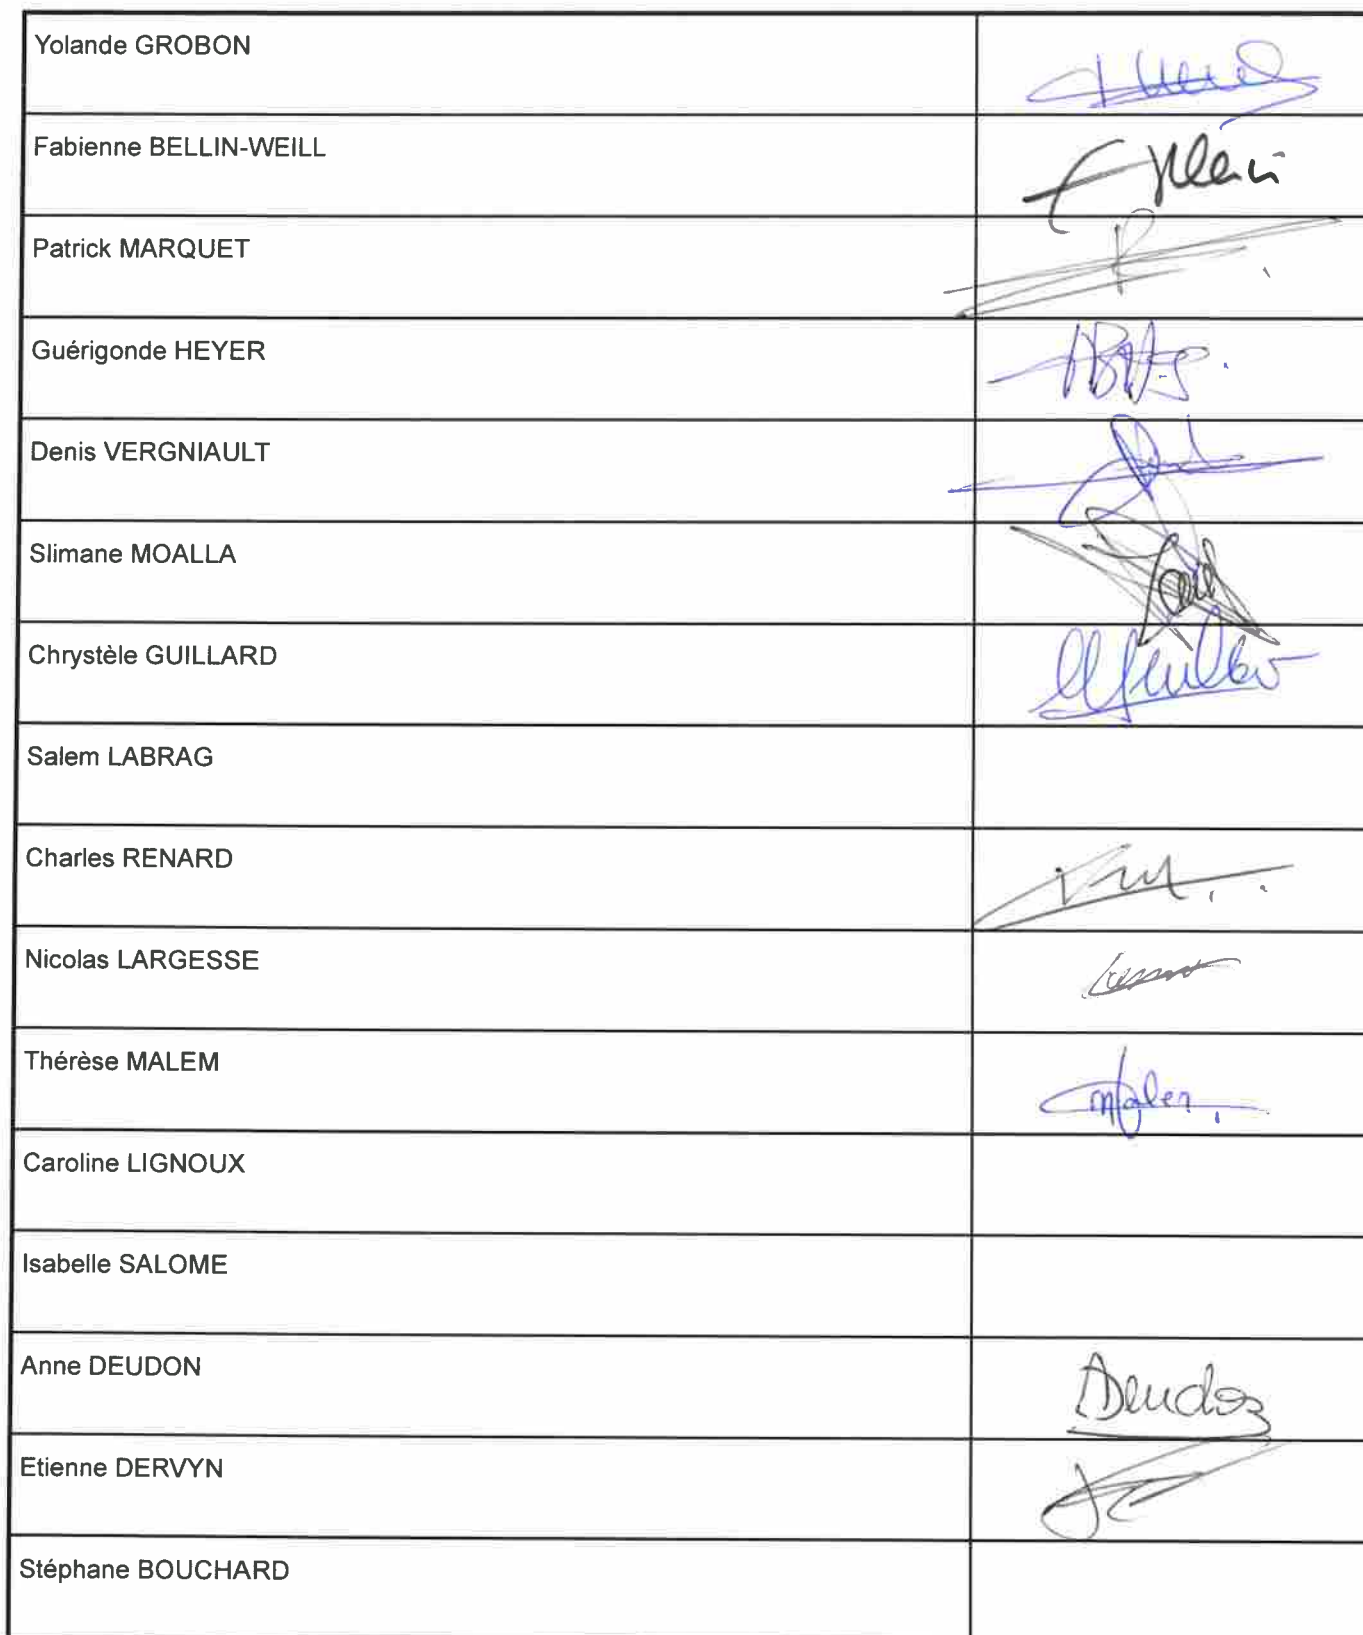 Yolande GROBON
Fabienne BELLIN-WEILL
Patrick MARQUET
Guérigonde HEYER
Denis VERGNIAULT
Slimane MOALLA
Chrystèle GUILLARD
Salem LABRAG
Charles RENARD
Nicolas LARGESSE
Thérèse MALEM
Caroline LIGNOUX
Isabelle SALOME
Anne DEUDON
Etienne DERVYN
Stéphane BOUCHARD